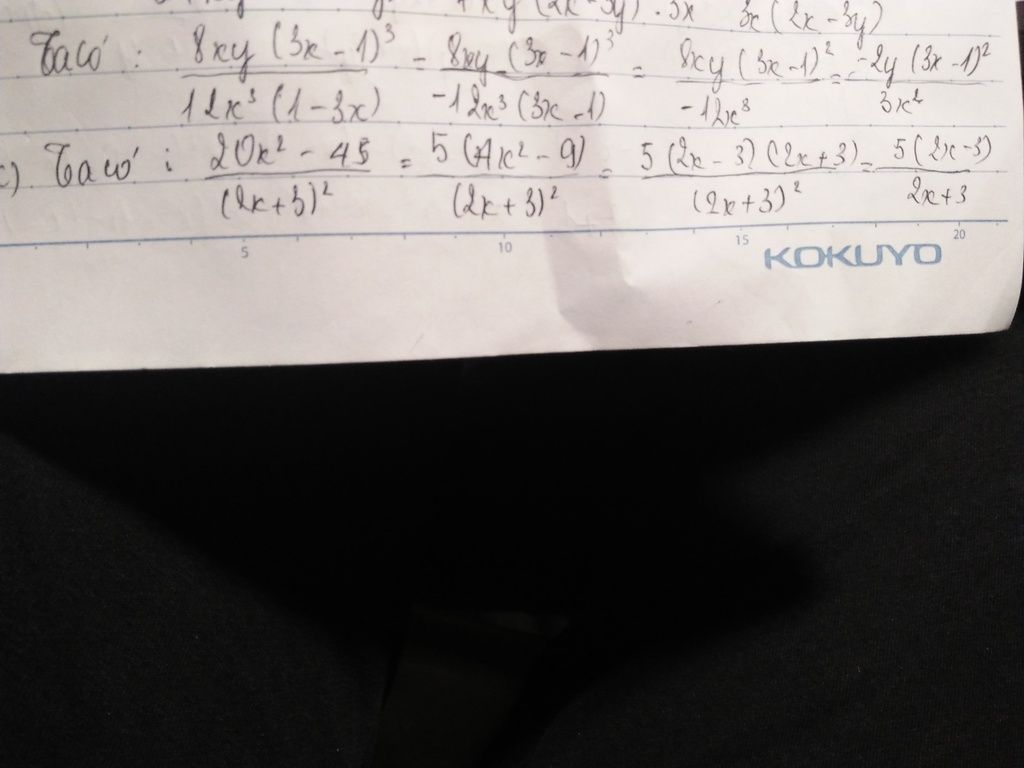 3x (2x-3y)
Ta có : 8xy (3x - 1)³ / 12x³ (1 - 3x) = 8xy (3x - 1)³ / -12x³ (3x - 1) = 8xy (3x - 1)² / -12x³ = -2y (3x - 1)² / 3x²
c). Ta có : 20x² - 45 / (2x + 3)² = 5 (4x² - 9) / (2x + 3)² = 5 (2x - 3) (2x + 3) / (2x + 3)² = 5 (2x - 3) / 2x + 3
5 10 15 20
KOKUYO